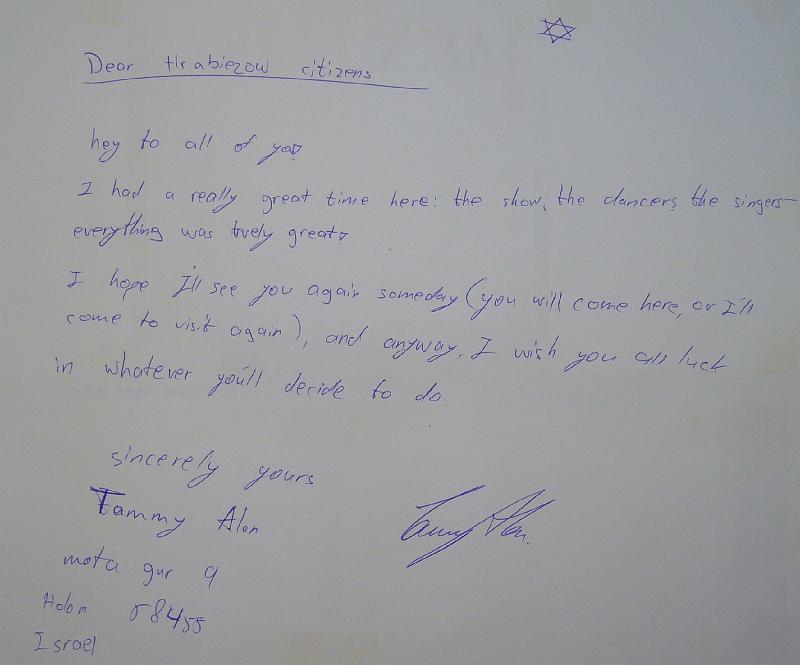 Dear Hrabiezow citizens
hey to all of you!
I had a really great time here: the show, the dancers, the singers-
everything was truely great!
I hope I'll see you again someday (you will come here, or I'll
come to visit again), and anyway, I wish you all luck
in whatever you'll decide to do.
sincerely yours
Tammy Alon
Tammy Alon.
mota gur 9
Holon 58455
Israel